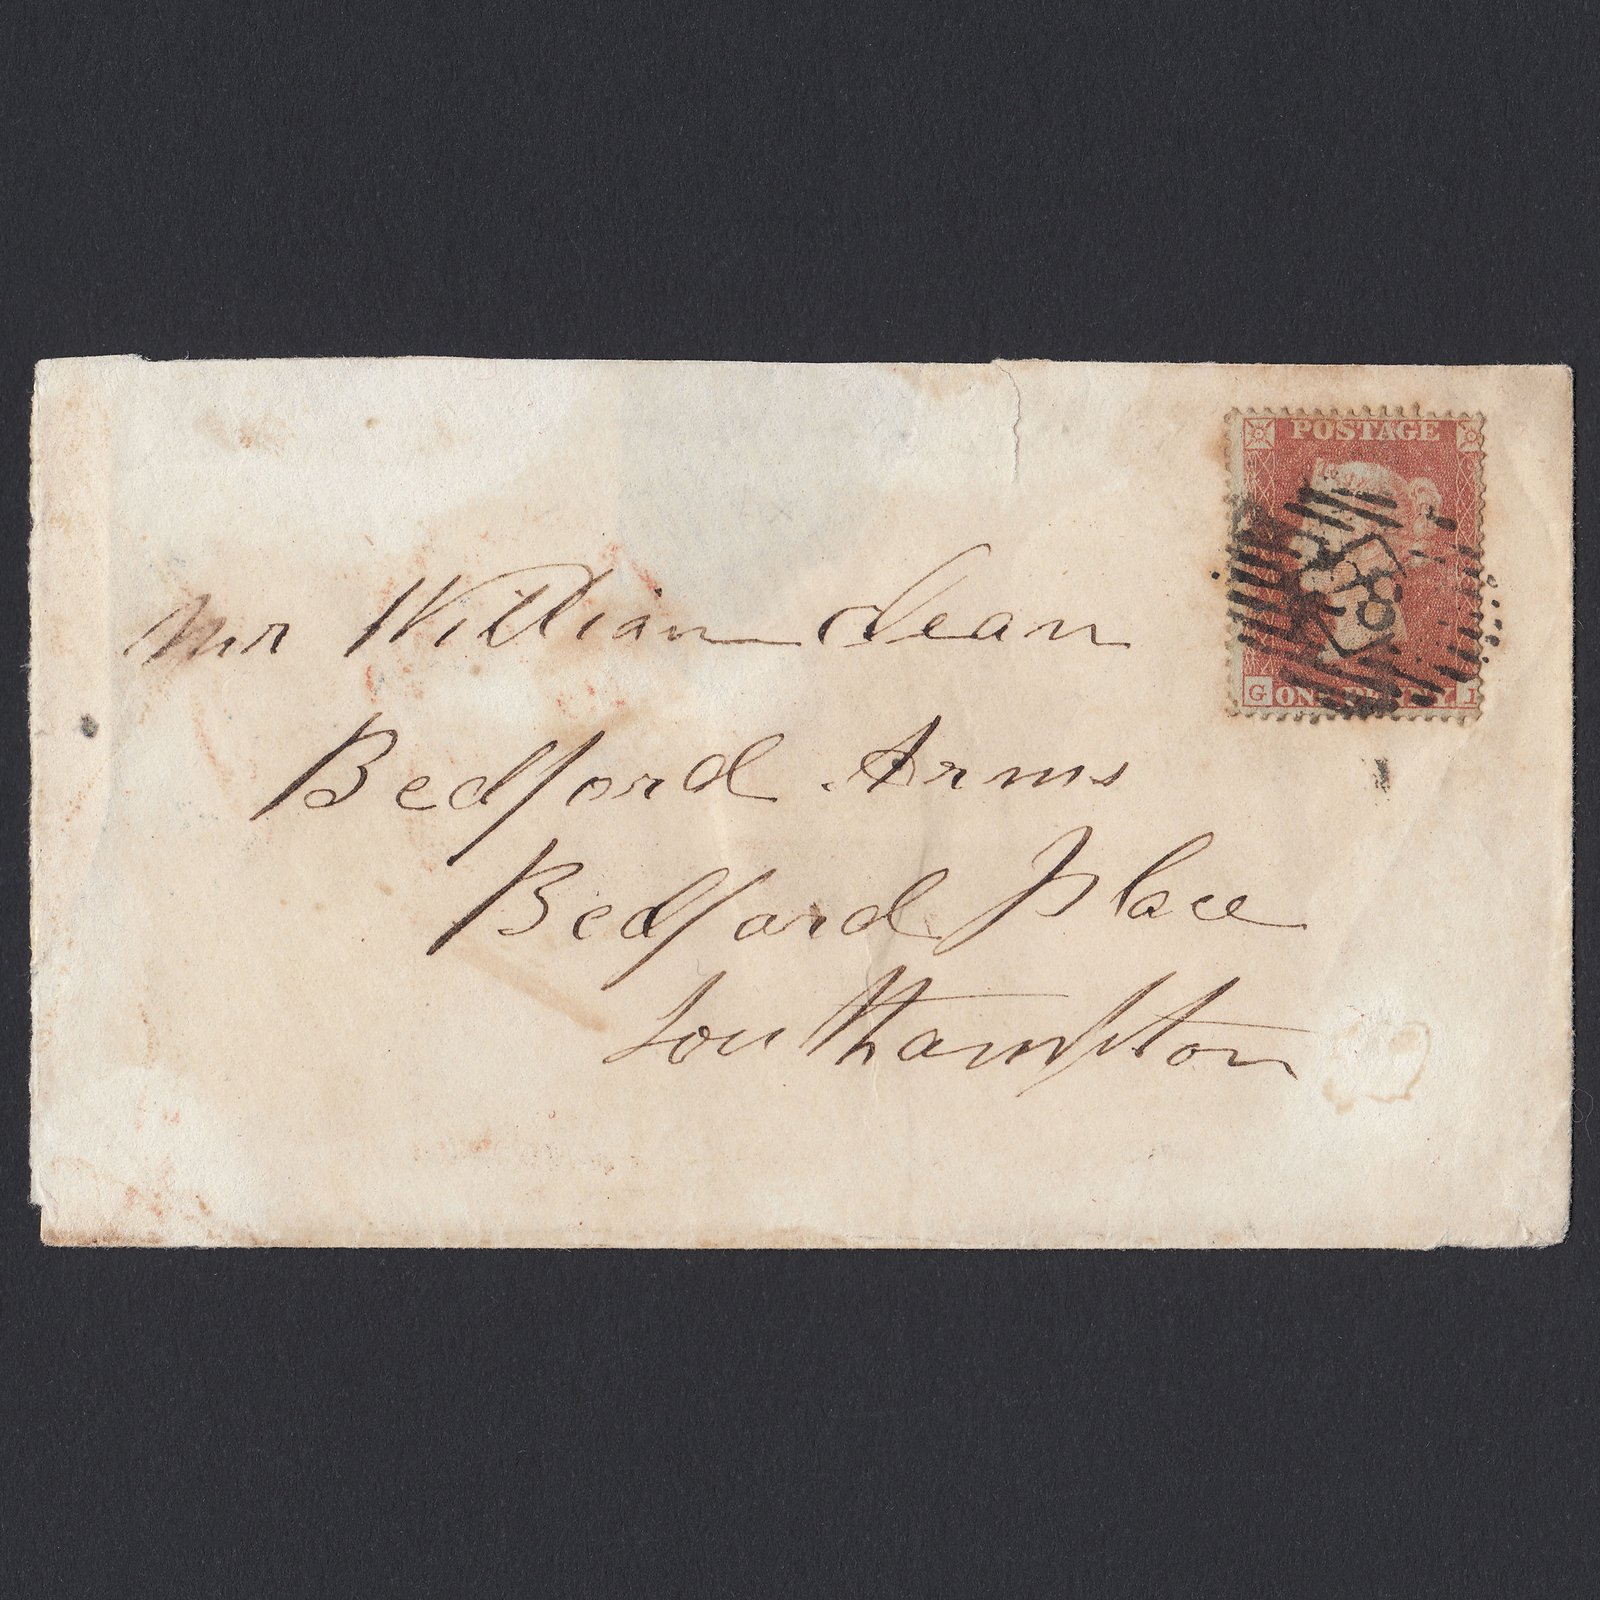 POSTAGE
G ONE PENNY I
Mr William Dean
Bedford Arms
Bedford Place
Southampton